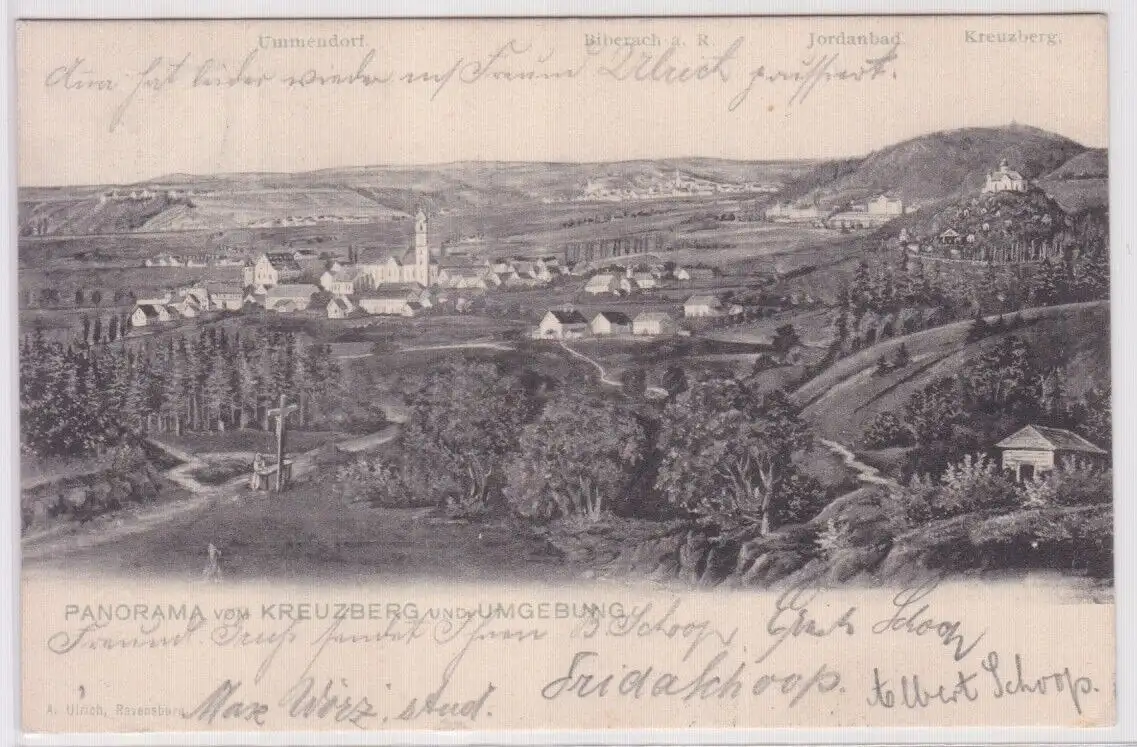 Ummendorf. Biberach a. R. Jordanbad Kreuzberg.
hat leider wieder mit Freund Ulrich poussiert.
PANORAMA VOM KREUZBERG UND UMGEBUNG
Freundl. Gruß sendet Ihnen B Schoop, Schoop
Frida Schoop.
Albert Schoop.
A. Ulrich, Ravensburg
Max Wörz, stud.